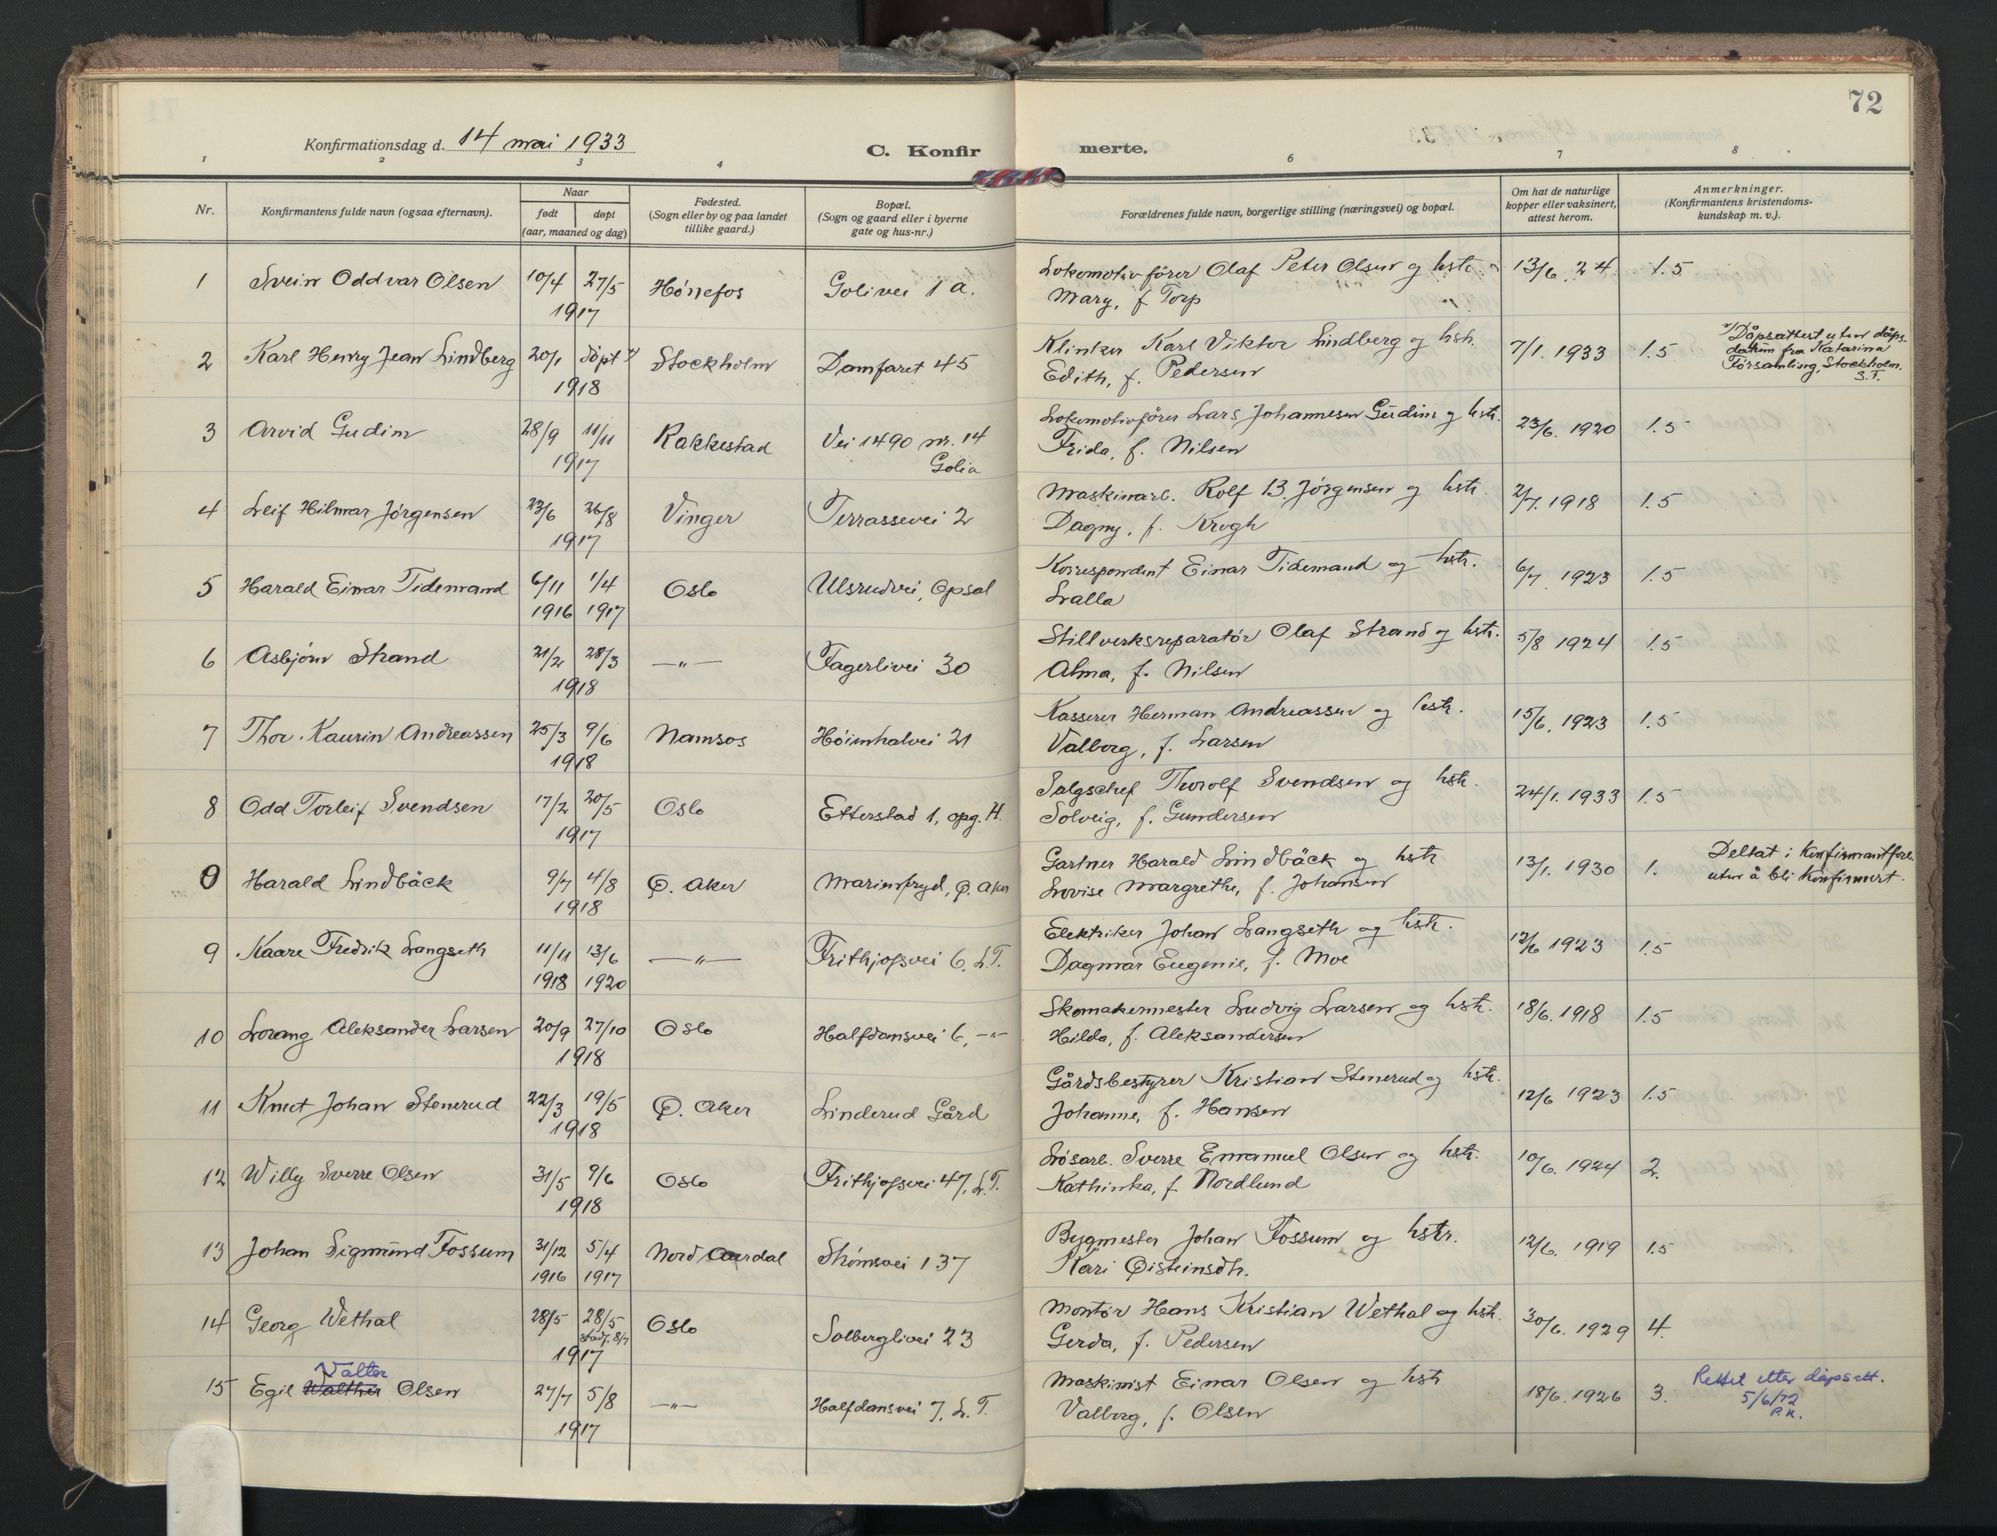 72
Konfirmationsdag d. 14 mai 1933
C. Konfir
merte.
1 2 3 4 6 7 8
Nr.
Konfirmantens fulde navn (ogsaa efternavn).
Naar
født døpt
(aar, maaned og dag)
Fødested.
(Sogn eller by og paa landet
tillike gaard.)
Bopæl.
(Sogn og gaard eller i byerne
gate og hus-nr.)
Forældrenes fulde navn, borgerlige stilling (næringsvei) og bopæl.
Om hat de naturlige
kopper eller vaksinert,
attest herom.
Anmerkninger.
(Konfirmantens kristendoms-
kundskap m. v.).
1 Svein Oddvar Olsen 10/4 27/5 Hønefos Golivei 1 a. Lokomotivfører Olaf Peter Olsen og hstr. 13/6. 24. 1.5
1917 Mary, f Torp
2 Karl Henry Jean Lindberg 20/1 døpt *) Stockholm Damfaret 45 Klinker Karl Viktor Lindberg og hstr. 7/1. 1933 1.5
1918 Edith, f. Pedersen
*) Dåpsattest uten dåps-
datum fra Katarina
Församling, Stockholm.
S.F.
3 Arvid Gudim 28/9 11/11 Rakkestad Vei 1490 nr. 14 Lokomotivfører Lars Johannesen Gudim og hstr. 23/6. 1920 1.5
1917 Golia Frida, f. Nilsen
4 Leif Hilmar Jørgensen 23/6 26/8 Vinger Terrassevei 2 Maskinarb. Rolf B. Jørgensen og hstr. 2/7. 1918 1.5
1917 Dagny, f. Krogh
5 Harald Einar Tidemand 6/11 1/4 Oslo Ulsrudvei, Opsal Korrespondent Einar Tidemand og hstr. 6/7. 1923 1.5
1916 1917 Lalla
6 Asbjørn Strand 21/2 28/3 —"— Fagerlivei 30 Stillverksreparatør Olaf Strand og hstr. 5/8 1924 1.5
1918 Alma, f. Nilsen
7 Thor Kaurin Andreassen 25/3 9/6 Namsos Høimhalvei 21 Kasserer Herman Andreassen og hstr. 15/6. 1923 1.5
1918 Valborg, f. Larsen
8 Odd Torleif Svendsen 17/2 20/5 Oslo Etterstad 1, opg. H. Salgschef Thorolf Svendsen og hstr. 24/1. 1933 1.5
1917 Solveig, f. Gundersen
0 Harald Lindbäck 9/7 4/8 Ø. Aker Marienfryd, Ø. Aker Gartner Harald Lindbäck og hstr 13/1. 1930 1.
1918 Lovise Margrethe, f. Johansen
Deltat i Konfirmantforb.
uten å bli Konfirmert.
9 Kaare Fredrik Langseth 11/11 13/6 —"— Frithjofsvei 6, L.T. Elektriker Johan Langseth og hstr. 12/6 1923 1.5
1918 1920 Dagmar Eugenie, f. Moe
10 Lorang Aleksander Larsen 20/9 27/10 Oslo Halfdansvei 6, —"— Skomakermester Ludvig Larsen og hstr. 18/6. 1918 1.5
1918 Hilda, f. Aleksandersen
11 Knut Johan Stenerud 22/3 19/5 Ø. Aker Linderud Gård Gårdsbestyrer Kristian Stenerud og hstr. 12/6 1923 1.5
1918 Johanne, f. Hansen
12 Willy Sverre Olsen 31/5 9/6 Oslo Frithjofsvei 47, L.T. Løsarb. Sverre Emanuel Olsen og hstr. 10/6. 1924 2.
1918 Kathinka, f Nordlund
13 Johan Sigmund Fossum 31/12 5/4 Nord Aurdal Strømsvei 137 Bygmester Johan Fossum og hstr. 12/6. 1919 1.5
1916 1917 Kari Øisteinsdtr.
14 Georg Wethal 28/5 28/5 Oslo Solberglivei 23 Montør Hans Kristian Wethal og hstr. 30/6. 1929 4.
stadf. 8/7
1917 Gerda, f. Pedersen
Valter
15 Egil Walther Olsen 27/7 5/8 —"— Halfdansvei 7, L.T. Maskinist Einar Olsen og hstr 18/6. 1926 3.
1917 Valborg, f. Olsen
Rettet etter dåpsatt.
5/6/72
P.K.